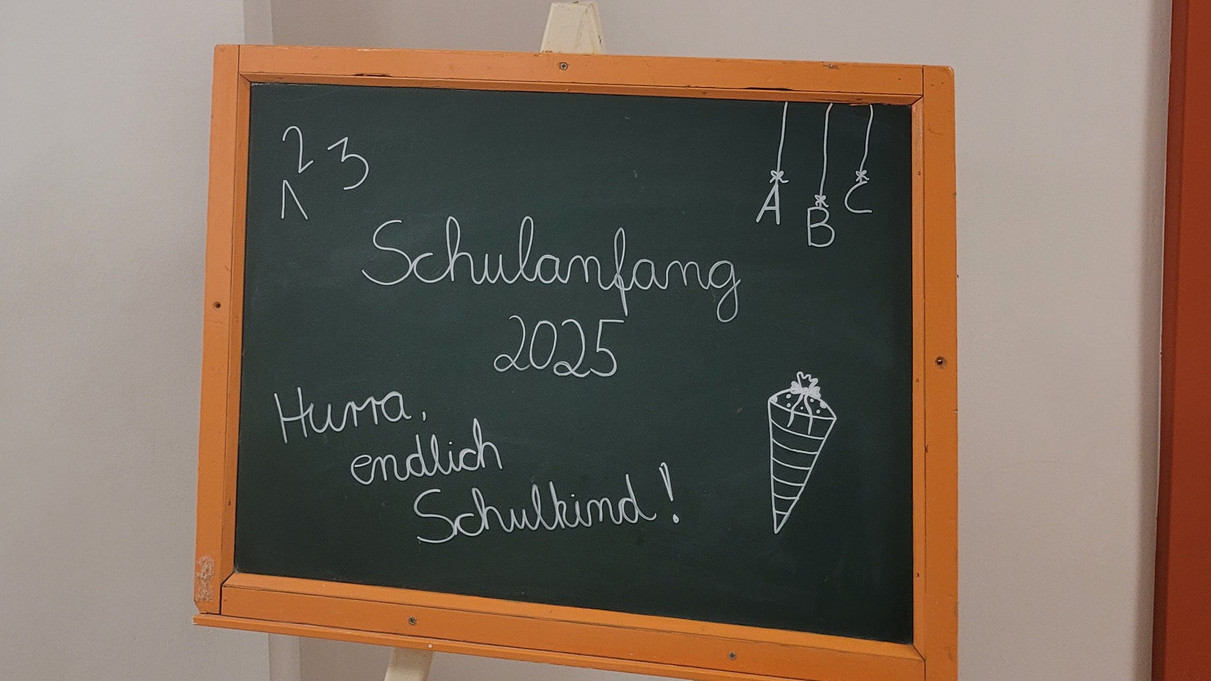 1 2 3
A B C
Schulanfang
2025
Hurra,
endlich
Schulkind!